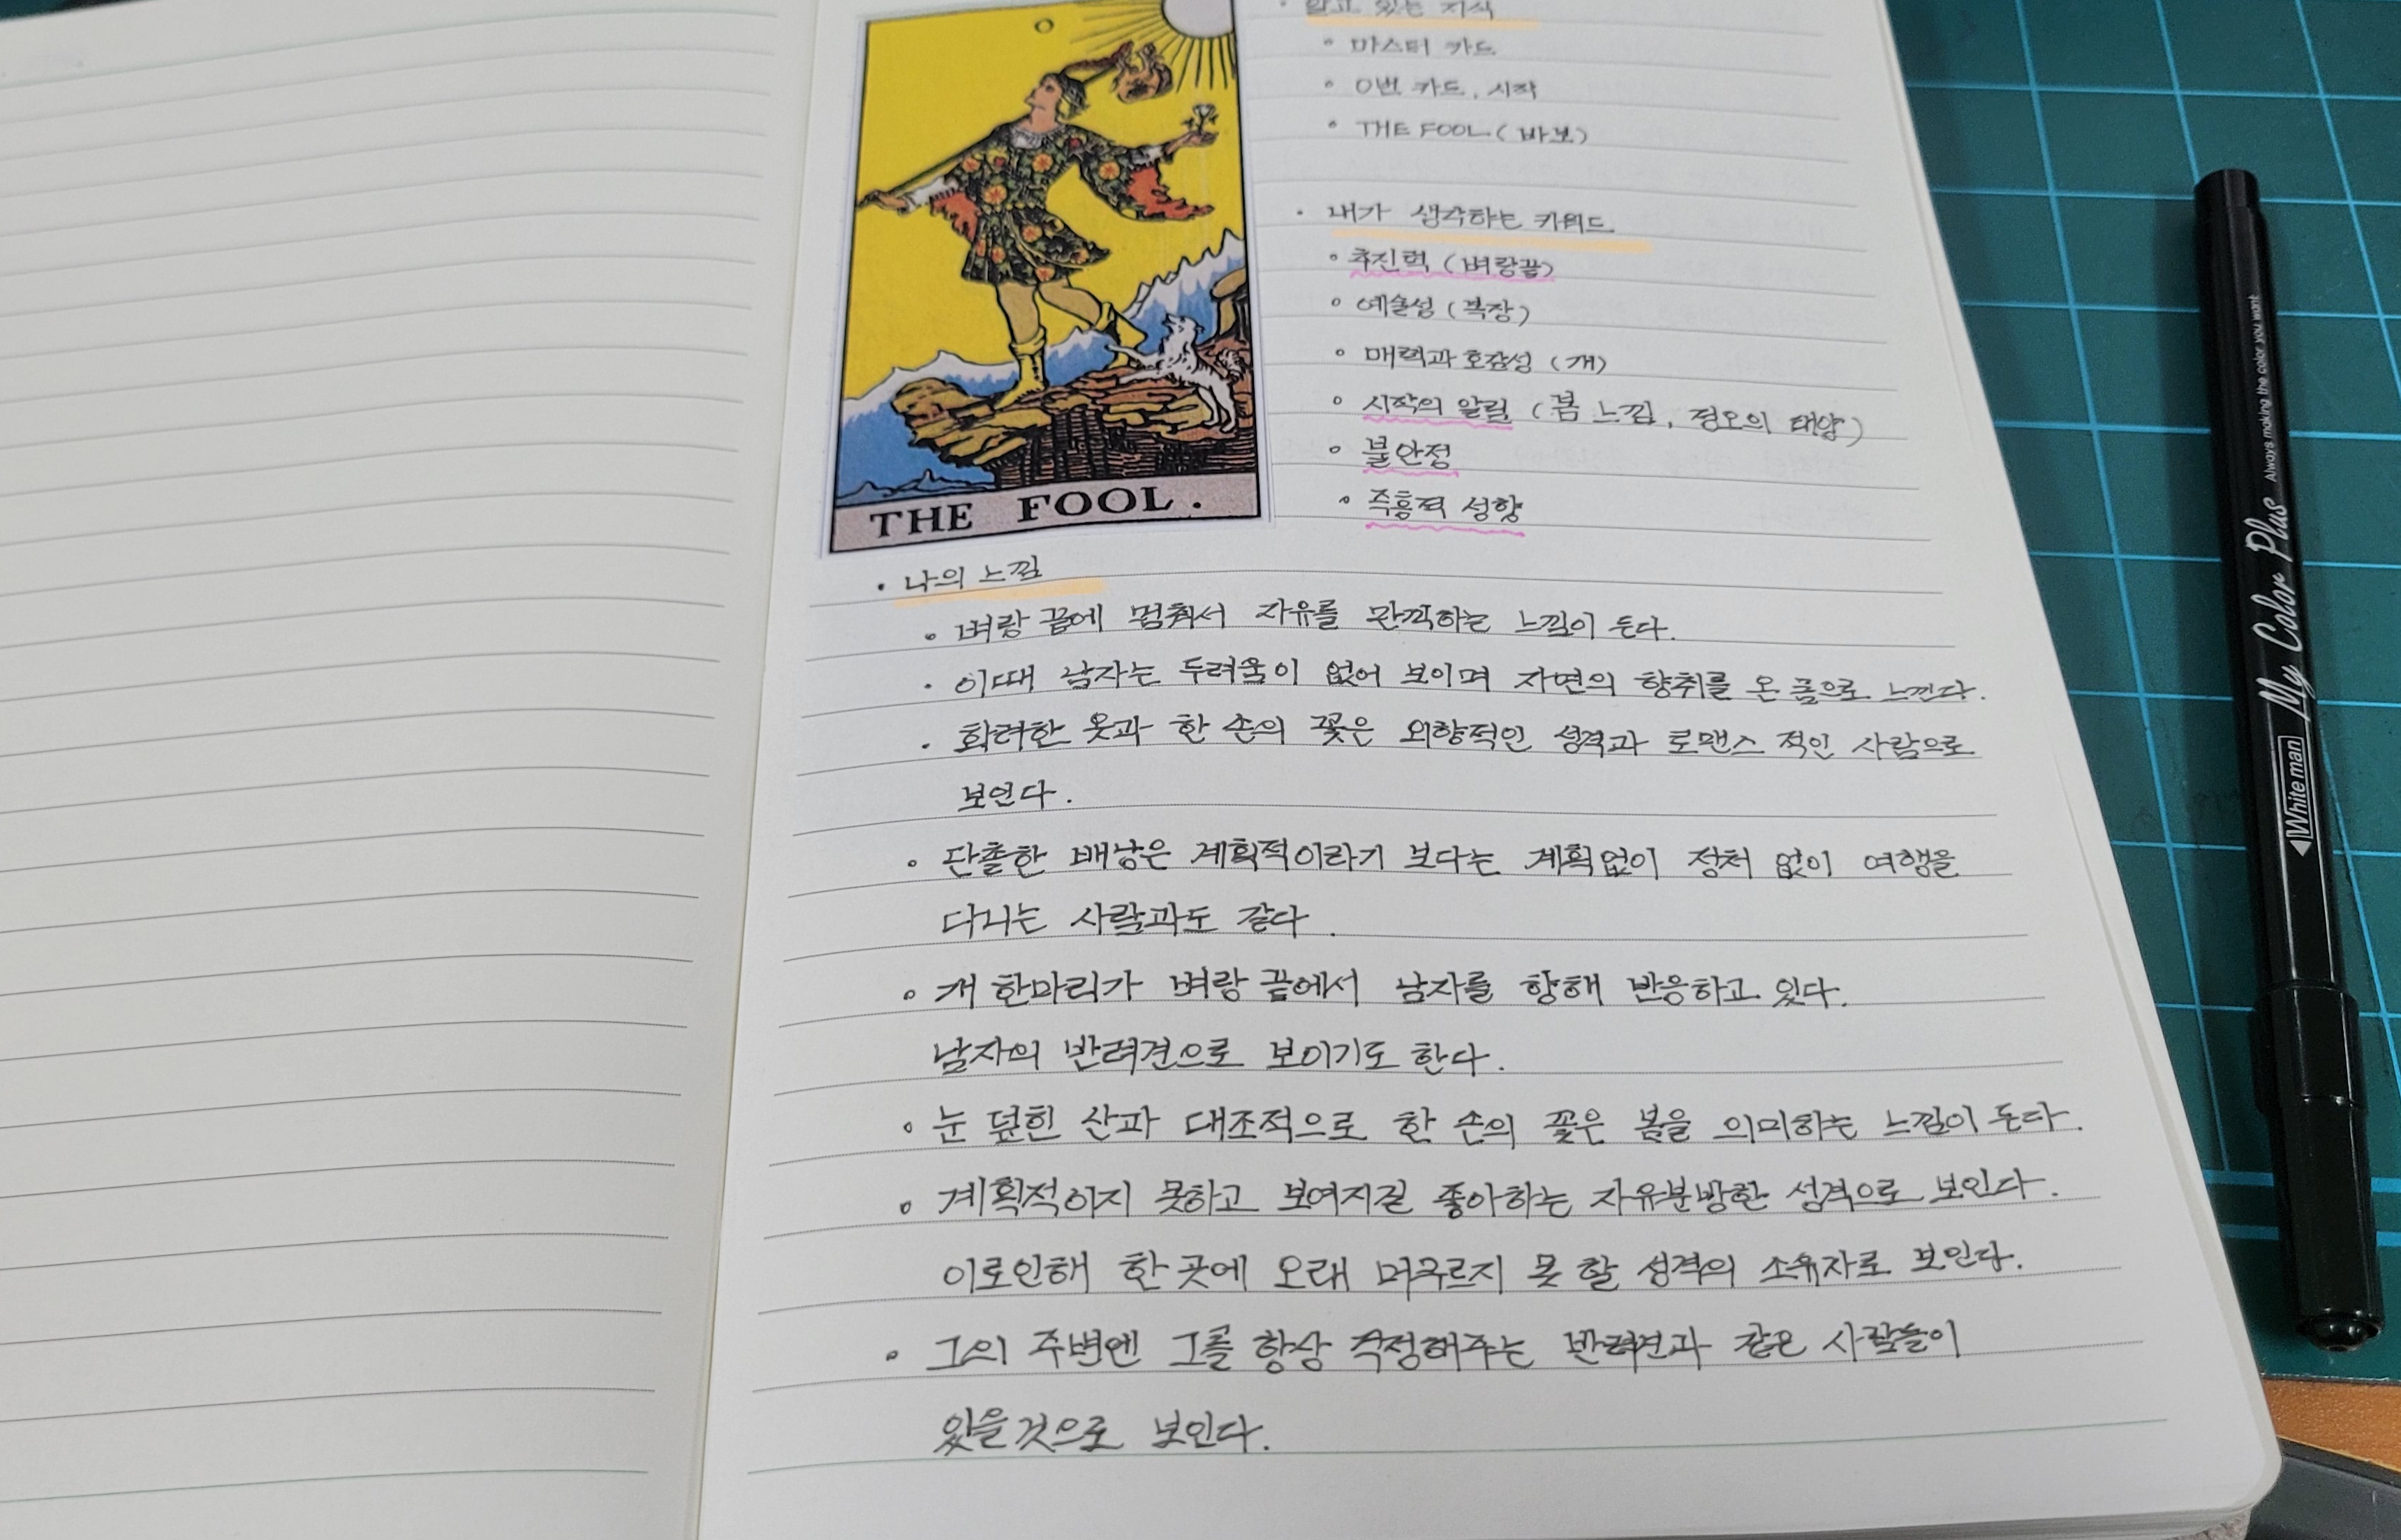 0
THE FOOL.
· 알고 있는 지식
◦ 마스터 카드
◦ 0번 카드, 시작
◦ THE FOOL (바보)
· 내가 생각하는 키워드
◦ 추진력 (벼랑끝)
◦ 예술성 (복장)
◦ 매력과 호감성 (개)
◦ 시작의 알림 (봄 느낌, 정오의 태양)
◦ 불안정
◦ 즉흥적 성향
· 나의 느낌
◦ 벼랑 끝에 멈춰서 자유를 만끽하는 느낌이 든다.
· 이때 남자는 두려움이 없어 보이며 자연의 향취를 온 몸으로 느낀다.
· 화려한 옷과 한 손의 꽃은 외향적인 성격과 로맨스 적인 사람으로
보인다.
◦ 단촐한 배낭은 계획적이라기 보다는 계획없이 정처 없이 여행을
다니는 사람과도 같다.
◦ 개 한마리가 벼랑 끝에서 남자를 향해 반응하고 있다.
남자의 반려견으로 보이기도 한다.
◦ 눈 덮힌 산과 대조적으로 한 손의 꽃은 봄을 의미하는 느낌이 든다.
◦ 계획적이지 못하고 보여지길 좋아하는 자유분방한 성격으로 보인다.
이로인해 한 곳에 오래 머무르지 못 할 성격의 소유자로 보인다.
◦ 그의 주변엔 그를 항상 걱정해주는 반려견과 같은 사람들이
있을것으로 보인다.
White man My Color Plus Always making the color you want